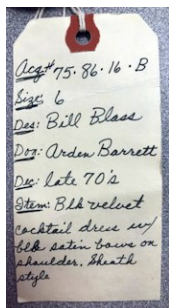 Acq# 75.86.16.B
Size: 6
Des: Bill Blass
Don: Arden Barrett
Dec: late 70's
Item: Blk velvet
cocktail dress w/
blk satin bows on
shoulder. Sheath
style